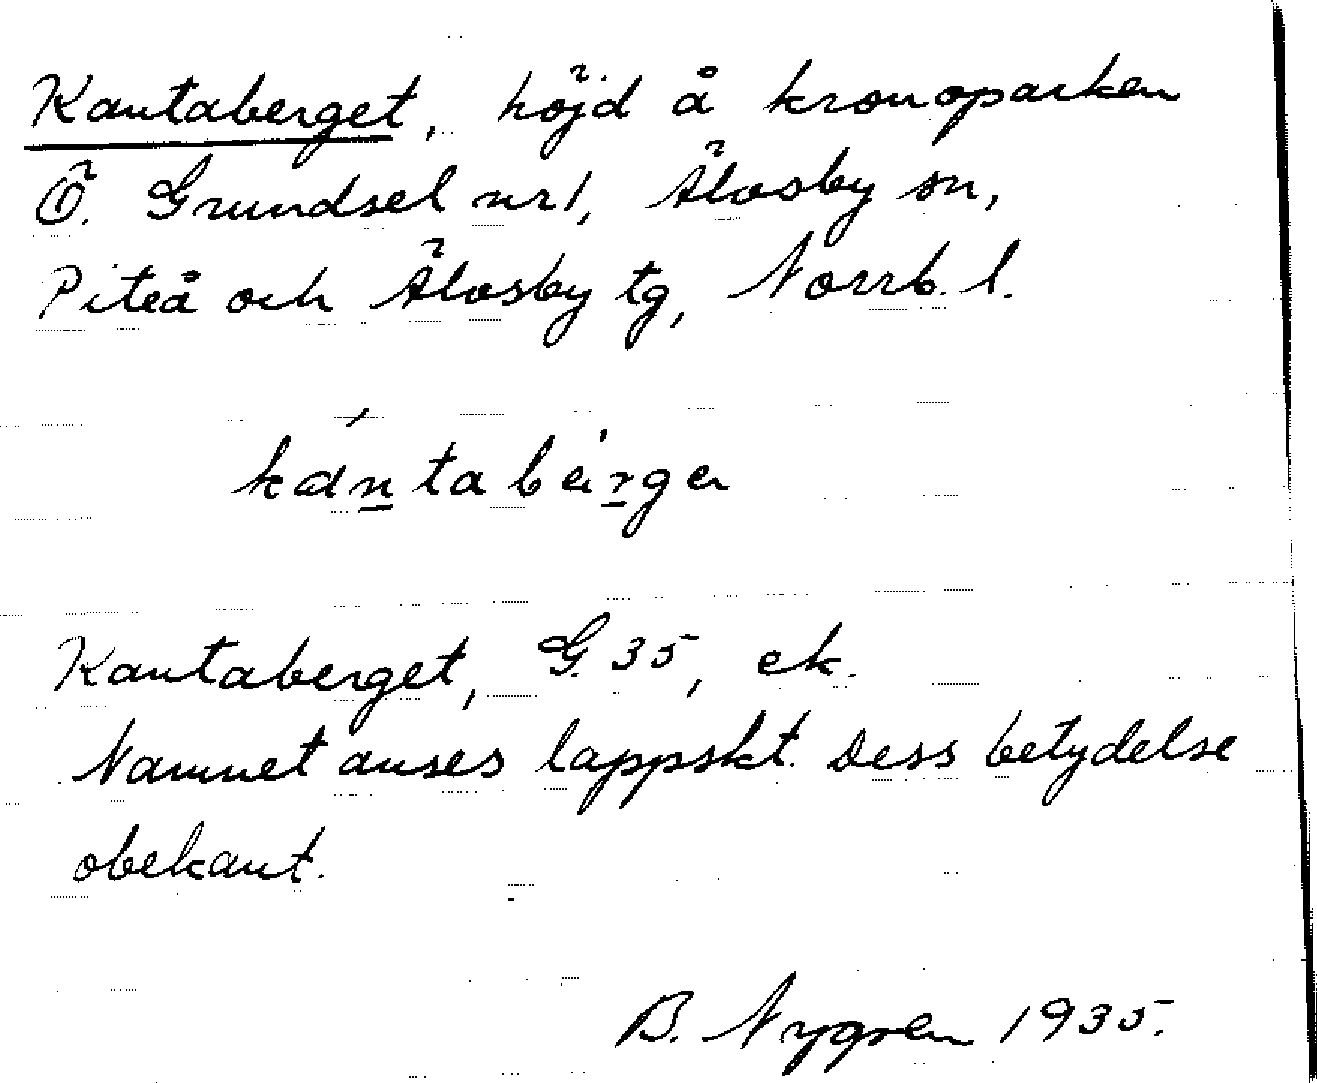 Kantaberget, höjd å kronoparken
Ö. Grundsel nr 1, Älvsby sn,
Piteå och Älvsby tg, Norrb. l.
Kantaberget, G. 35, ek.
Namnet anses lappskt. Dess betydelse
obekant.
B. Nygren 1935.